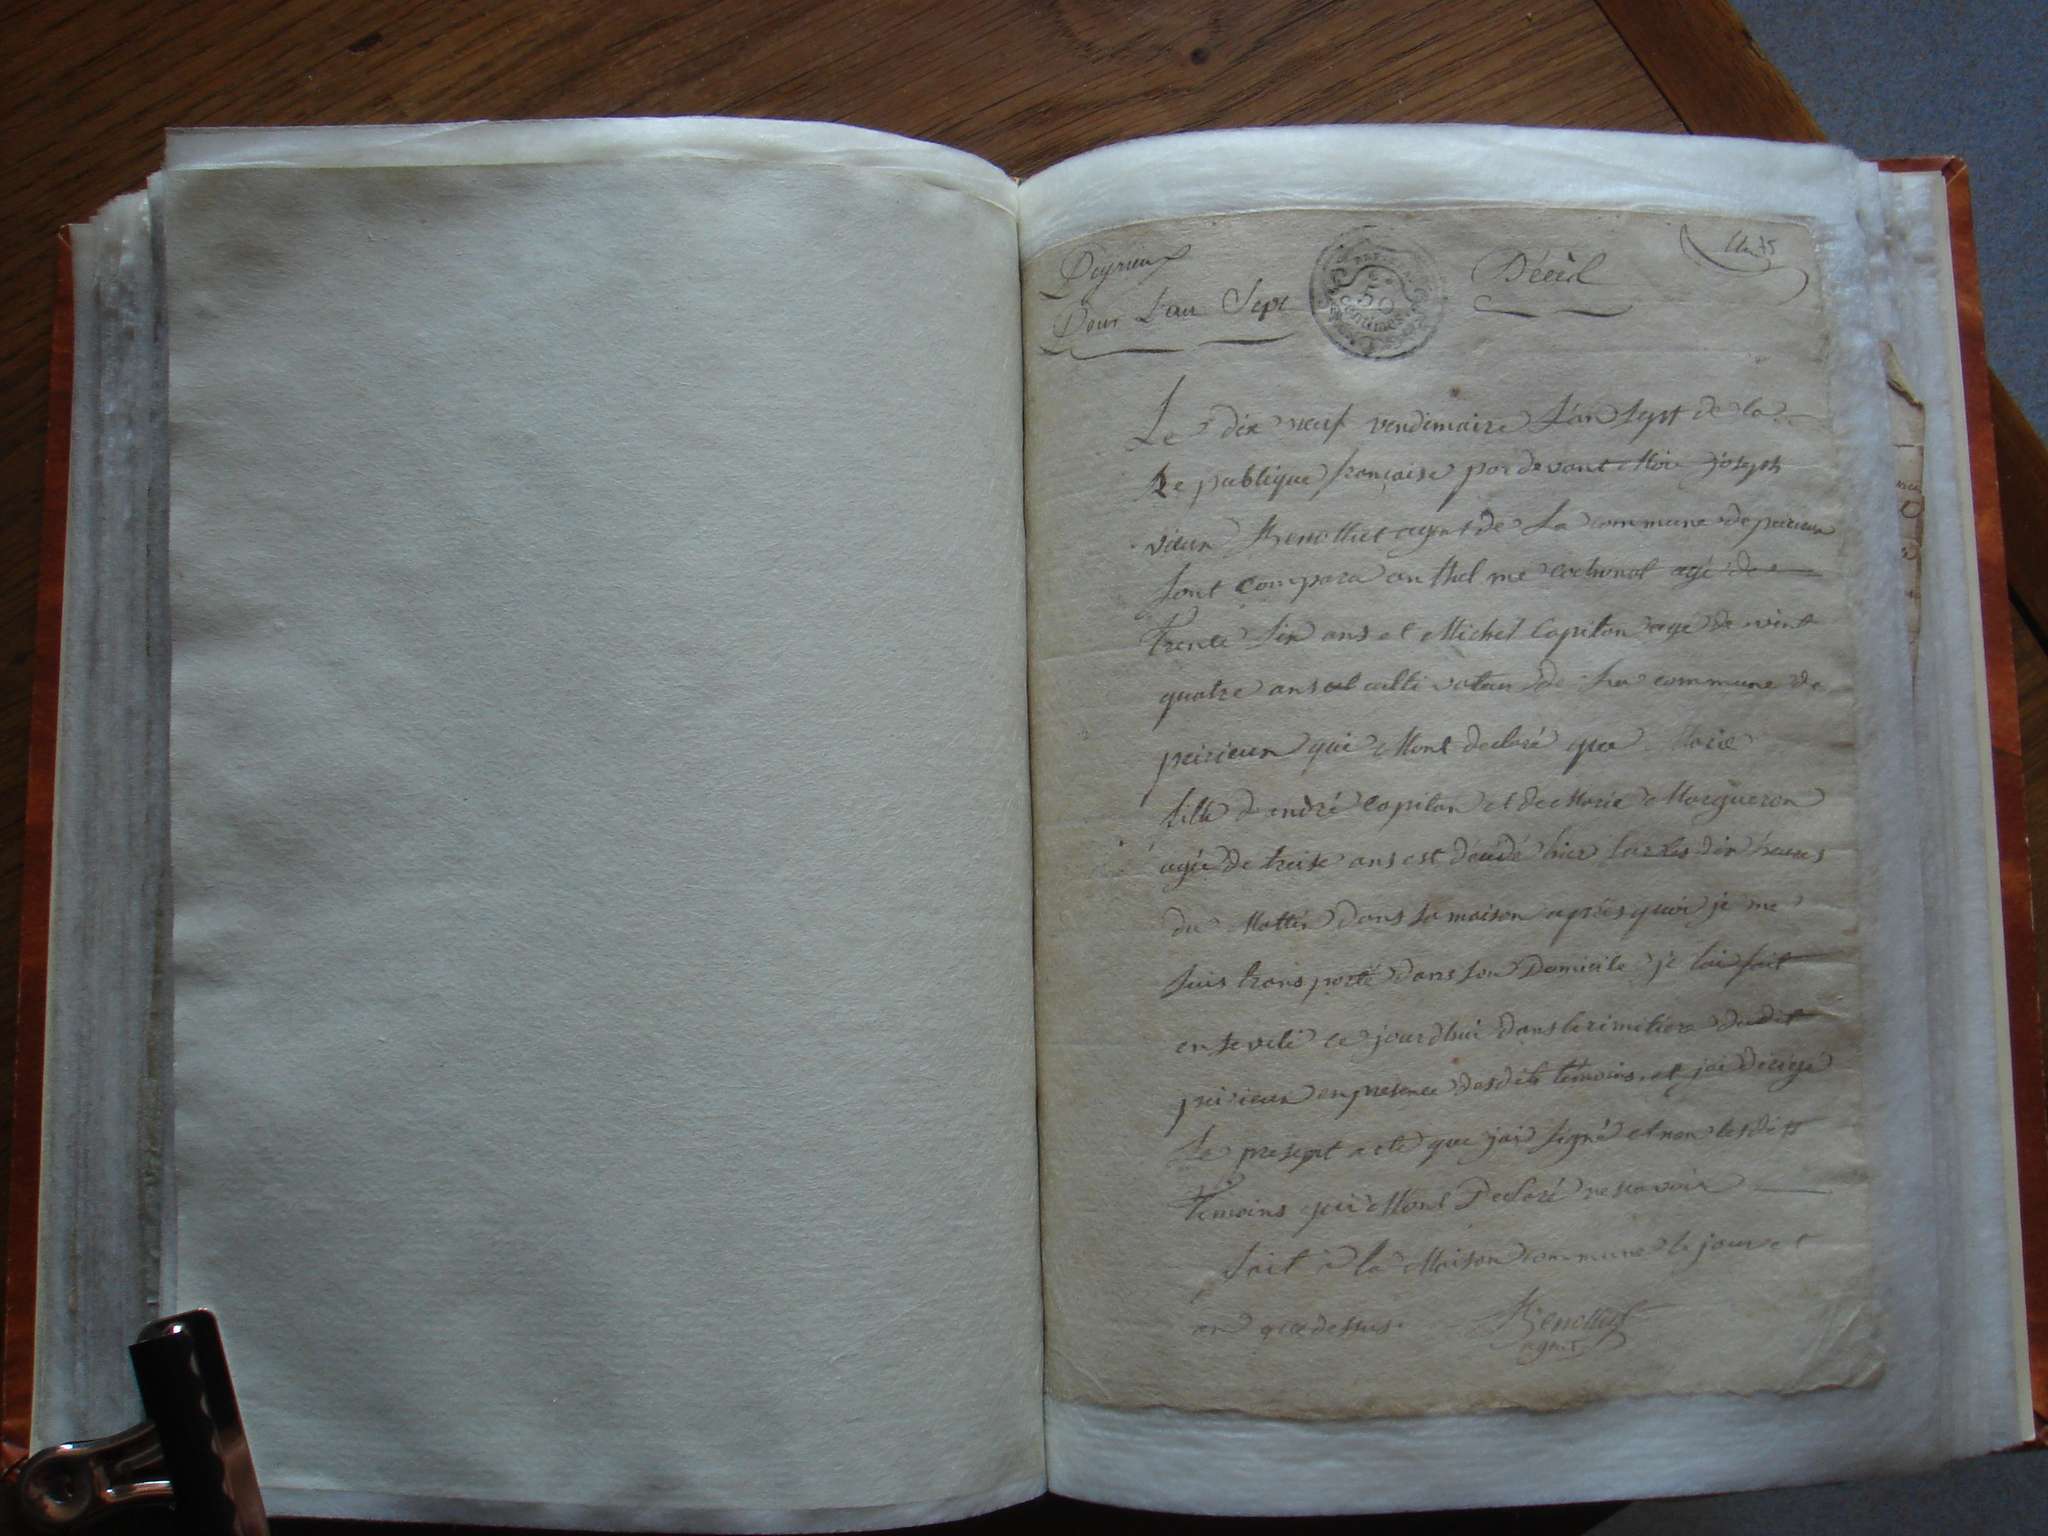 Peyrieu
Pour L'an Sept
50
centimes
Décéd
Le dix neuf vendemaire L'an sept de la
Re publique francaise par devant Moi joseph
Benollies agent de La commune de peirieux
sont compara anthel me cochonat agé de
trente six ans et Michel Capitan age de vint
quatre ans cultivateur de La commune de
peirieux qui Mont declaré que Marie
fille d andré Capitan et de Marie Margueron
agée de treise ans est décédé hier sur les dix heures
du Mattin dans sa maison apres quoi je me
suis trans porté dans son Domicile je lai fait
en seveli ce jourdhui dans le cimitiere dudit
peirieux en presence des dits témoins et jai
Le present acte que jai signé et non lesdits
temoins qui Mont Declaré ne savoir
fait à la Maison commune le jour et
an que dessus.
agent